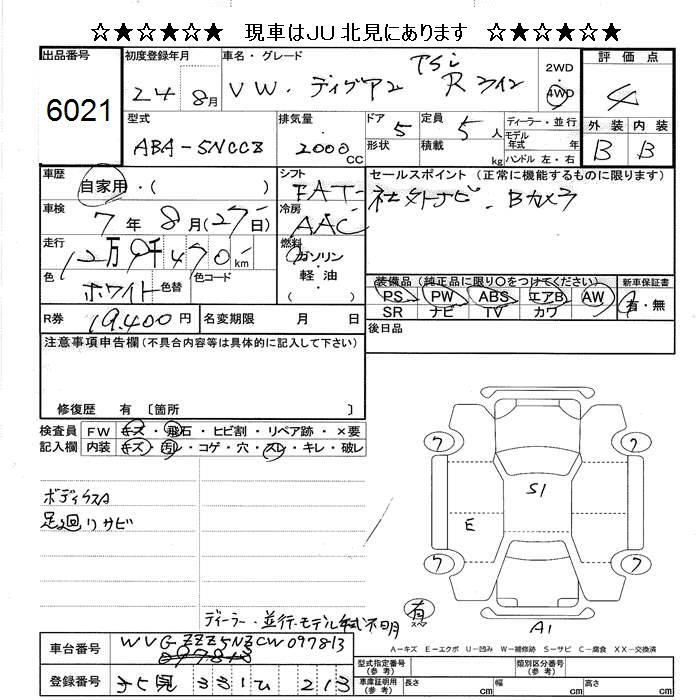 ☆★☆★☆★ 現車はJU北見にあります ☆★☆★☆★
出品番号
6021
初度登録年月
24 8月
車名・グレード
VW. ティグアン TSi Rライン
2WD
4WD
評価点
4
外装 内装
B B
型式
ABA-5NCCZ
排気量
2000 CC
ドア 5
形状
定員 5 人
積載 kg
ディーラー・並行
モデル年式 年
ハンドル 左・右
車歴
自家用・( )
シフト
FAT
セールスポイント (正常に機能するものに限ります)
社外ナビ. Bカメラ
車検
7年 8月(27日)
冷房
AAC
走行
12万9千470km
燃料
ガソリン
軽油
( )
色
ホワイト
色替
色コード
装備品 (純正品に限り〇をつけてください)
PS PW ABS エアB AW
SR ナビ TV カワ
新車保証書
有・無
R券 19,400円
名変期限 月 日
後日品
注意事項申告欄(不具合内容等は具体的に記入して下さい)
修復歴 有 〔箇所 〕
検査員記入欄
FW キズ・飛石・ヒビ割・リペア跡・×要
内装 キズ・汚レ・コゲ・穴・スレ・キレ・破レ
ボディクスA
足廻リサビ
ワ ワ
S1
E
ワ ワ
A1
有
スペア
ディーラー・並行・モデル年式不明
A-キズ E-エクボ U-凹み W-補修跡 S-サビ C-腐食 XX-交換済
車台番号
WVGZZZ5NZCW097813
097813
登録番号
北見 331ひ 213
型式指定番号
(参考)
類別区分番号
(参考)
車庫証明用
(参考)
長さ cm
幅 cm
高さ cm